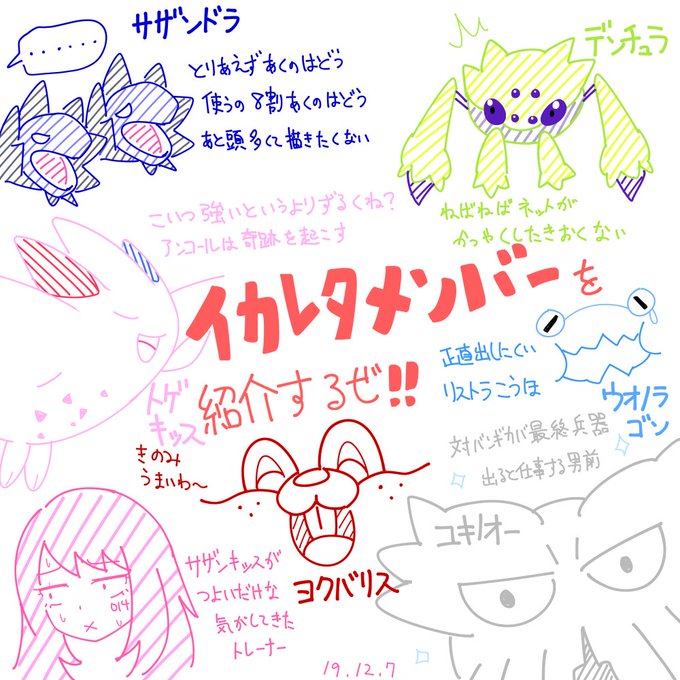 サザンドラ
......
とりあえずあくのはどう
使うの8割あくのはどう
あと頭多くて描きたくない
デンチュラ
ねばねばネットが
かつやくしたきおくない
こいつ強いというよりずるくね?
アンコールは奇跡を起こす
トゲ
キッス
イカレタメンバーを
紹介するぜ!!
正直出しにくい
リストラこうほ
ウオノラ
ゴン
対バンギカバ最終兵器
出ると仕事する男前
ユキノオー
きのみ
うまいわ〜
ヨクバリス
サザンキッスが
つよいだけな
気がしてきた
トレーナー
014
19.12.7